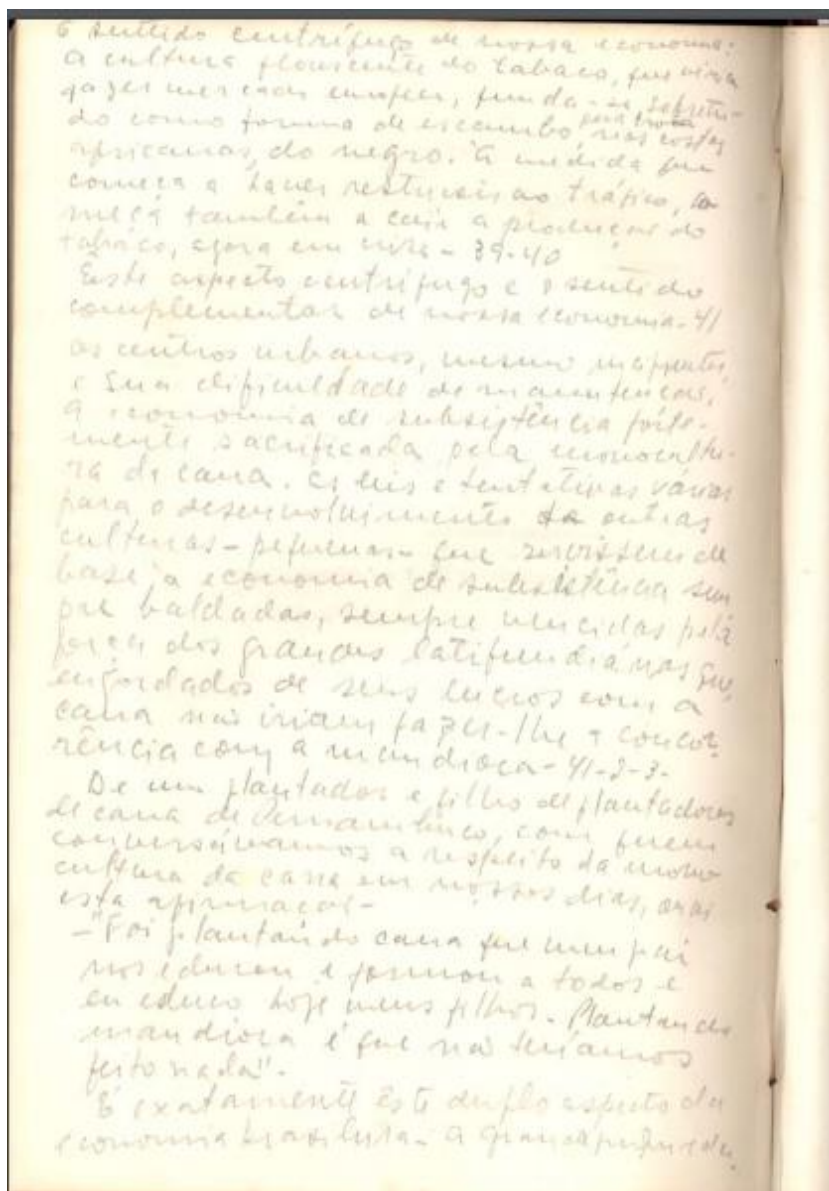 O sentido centrífugo de nossa economia:
a cultura florescente do tabaco, que visa
mercados europeus, funda-se, sobretu-
do como forma de escambo para troca nas costas
africanas, do negro. À medida que
começa a haver restrições ao tráfico, co-
meça também a cair a produção do
tabaco, agora em crise - 39-40
Êste aspecto centrífugo e o sentido
complementar de nossa economia - 41
os centros urbanos, mesmo incipientes,
e sua dificuldade de manutenção,
a economia de subsistência forte-
mente sacrificada pela monocultu-
ra de cana. As leis e tentativas várias
para o desenvolvimento de outras
culturas - pequenas - que servissem de
base à economia de subsistência sem
pre baldadas, sempre vencidas pela
força dos grandes latifundiários que,
engordados de seus lucros com a
cana não iriam fazer-lhe a concor-
rência com a mandioca - 41-2-3-
De um plantador e filho de plantadores
de cana de Pernambuco, com quem
conversávamos a respeito da mono
cultura da cana em nossos dias,
esta afirmação -
- "Foi plantando cana que meu pai
nos educou e formou a todos e
eu educo hoje meus filhos. Plantando
mandioca é que não teríamos
feito nada".
É exatamente êste duplo aspecto da
economia brasileira - a grande propriedade